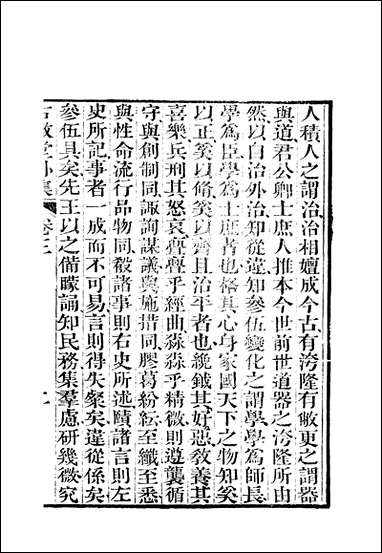 人積人之謂治治相嬗成今古有洿隆有敝更之謂器
與道君公卿士庶人推本今世前世道器之洿隆所由
然以自治外治知從違知參伍變化之謂學學為師長
學為臣學為士庶者也格其心身家國天下之物知奚
以正奚以脩奚以齊且治平者也統鉞其好惡教養其
喜樂兵刑其怒哀亹亹乎經曲淼淼乎精微則遵襲循
守與創制同諏詢謀議與施措同膠葛紛紜至纖至悉
與性命流行品物同殽諸事則右史所述賾諸言則左
史所記事者一成而不可易言則得失粲矣違從係矣
參伍具矣先王以之備矇誦知民務集羣慮研幾微究
古微堂外集
卷三